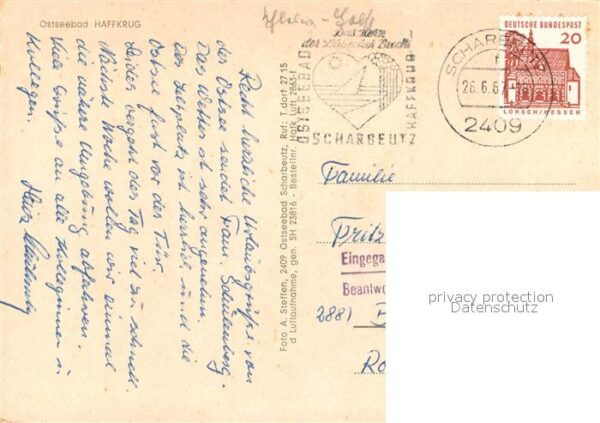 Ostseebad HAFFKRUG
Schlesw.-Holst
Das Herz
der Lübecker Bucht
OSTSEEBAD
HAFFKRUG
SCHARBEUTZ
SCHARBEUTZ
26.6.67
2409
DEUTSCHE BUNDESPOST
20
LORSCH/HESSEN
Recht herzliche Urlaubsgrüße von
der Ostsee sendet Fam. Schulenberg.
Das Wetter ist sehr angenehm.
Der Zeltplatz ist herrlich und die
Ostsee fast vor der Tür.
Leider vergeht der Tag viel zu schnell.
Nächste Woche wollen wir einmal
die nähere Umgebung abfahren.
Viele Grüße an alle Kolleginnen u.
Kollegen.
Heinz
Foto A. Steffen, 2409 Ostseebad Scharbeutz, Ruf: T.dorf 2715
d Luftaufnahme, gen. SH 23816 - Bestellnr. Hafk Luft 2863-f
Familie
Fritz
Eingega
Beantwor
2881
Ro
privacy protection
Datenschutz